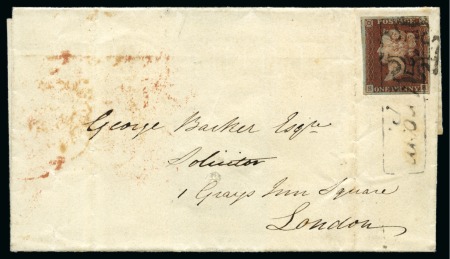 POSTAGE
ONE PENNY
George Barker Esqre
Solicitor
1 Grays Inn Square
London